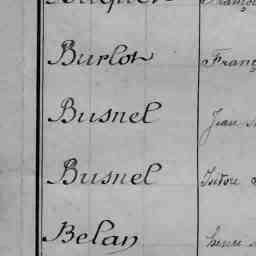 Burlot Franç
Busnel Jean
Busnel Isidore
Belan